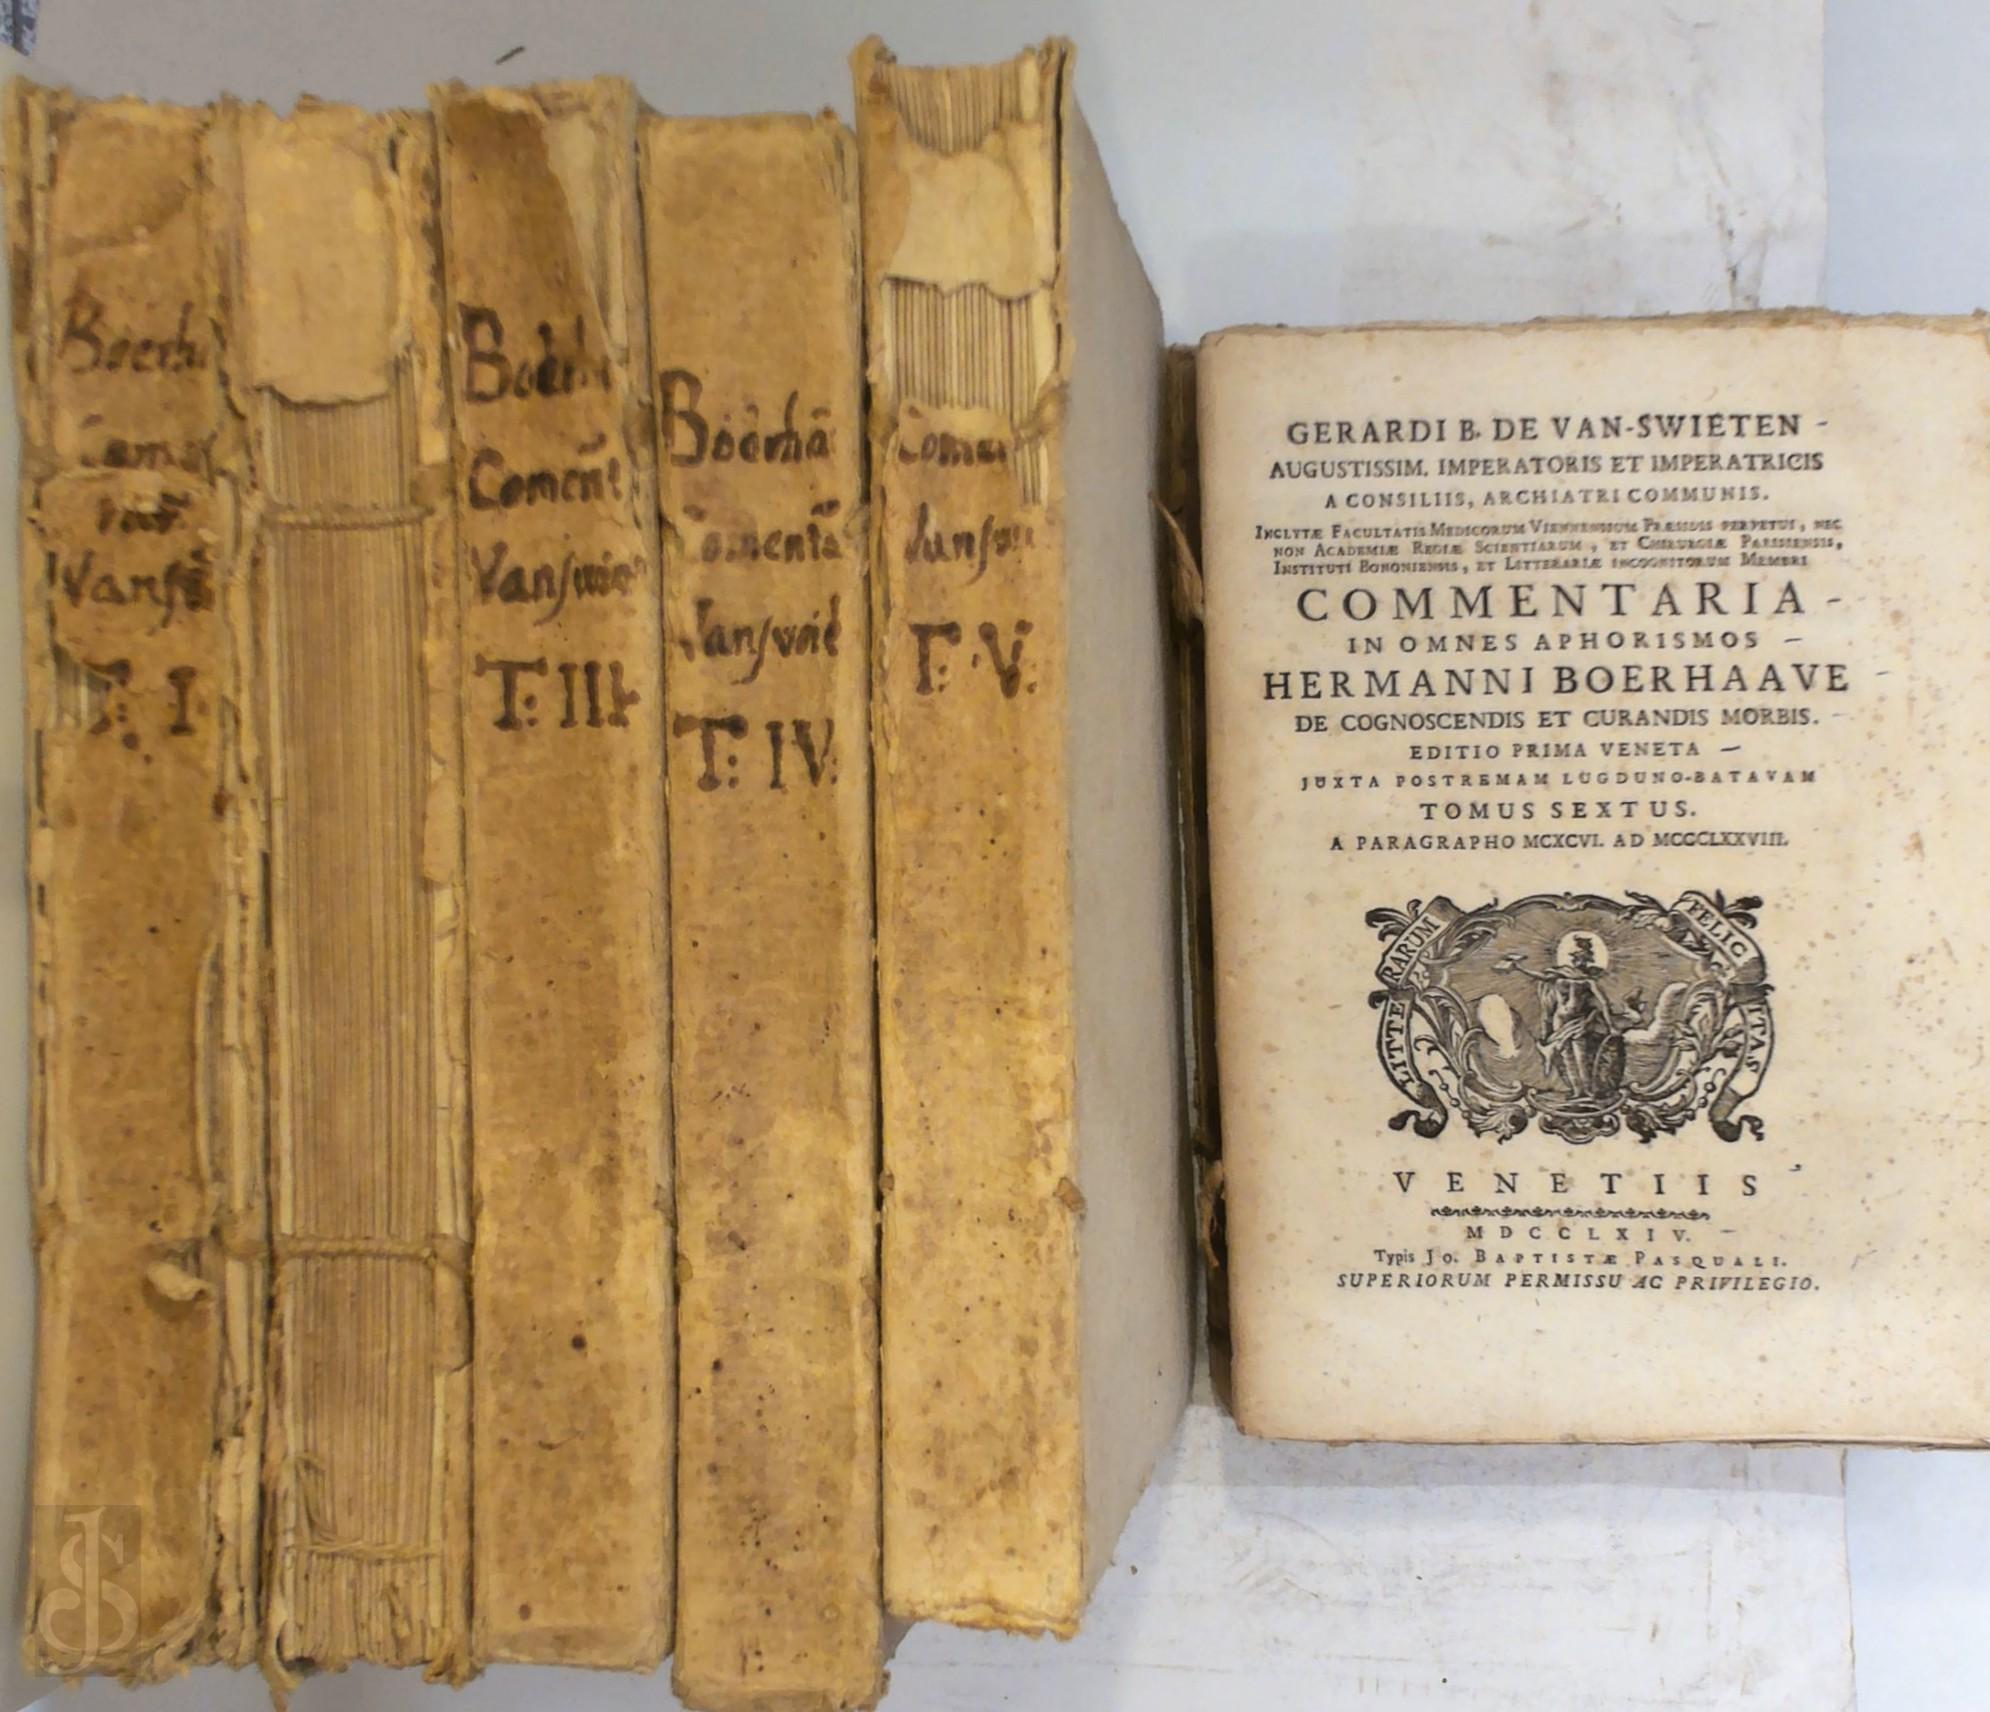 Boerh.
Vansu
T: I.
Boerh
Coment
Vanswie
T: III
Boerha
Comenta
Vanswiet
T: IV.
Comen
Vansw
T: V.
GERARDI B. DE VAN-SWIETEN
AUGUSTISSIM. IMPERATORIS ET IMPERATRICIS
A CONSILIIS, ARCHIATRI COMMUNIS.
INCLYTÆ FACULTATIS MEDICORUM VIENNENSIUM PRÆSIDIS PERPETUI, NEC
NON ACADEMIÆ REGIÆ SCIENTIARUM, ET CHIRURGIÆ PARISIENSIS,
INSTITUTI BONONIENSIS, ET LITTERARIÆ INCOGNITORUM MEMBRI
COMMENTARIA
IN OMNES APHORISMOS
HERMANNI BOERHAAVE
DE COGNOSCENDIS ET CURANDIS MORBIS.
EDITIO PRIMA VENETA
JUXTA POSTREMAM LUGDUNO-BATAVAM
TOMUS SEXTUS.
A PARAGRAPHO MCXCVI. AD MCCCLXXVIII.
LITTERARUM FELICITAS
VENETIIS
MDCCLXIV.
Typis JO. BAPTISTÆ PASQUALI.
SUPERIORUM PERMISSU AC PRIVILEGIO.